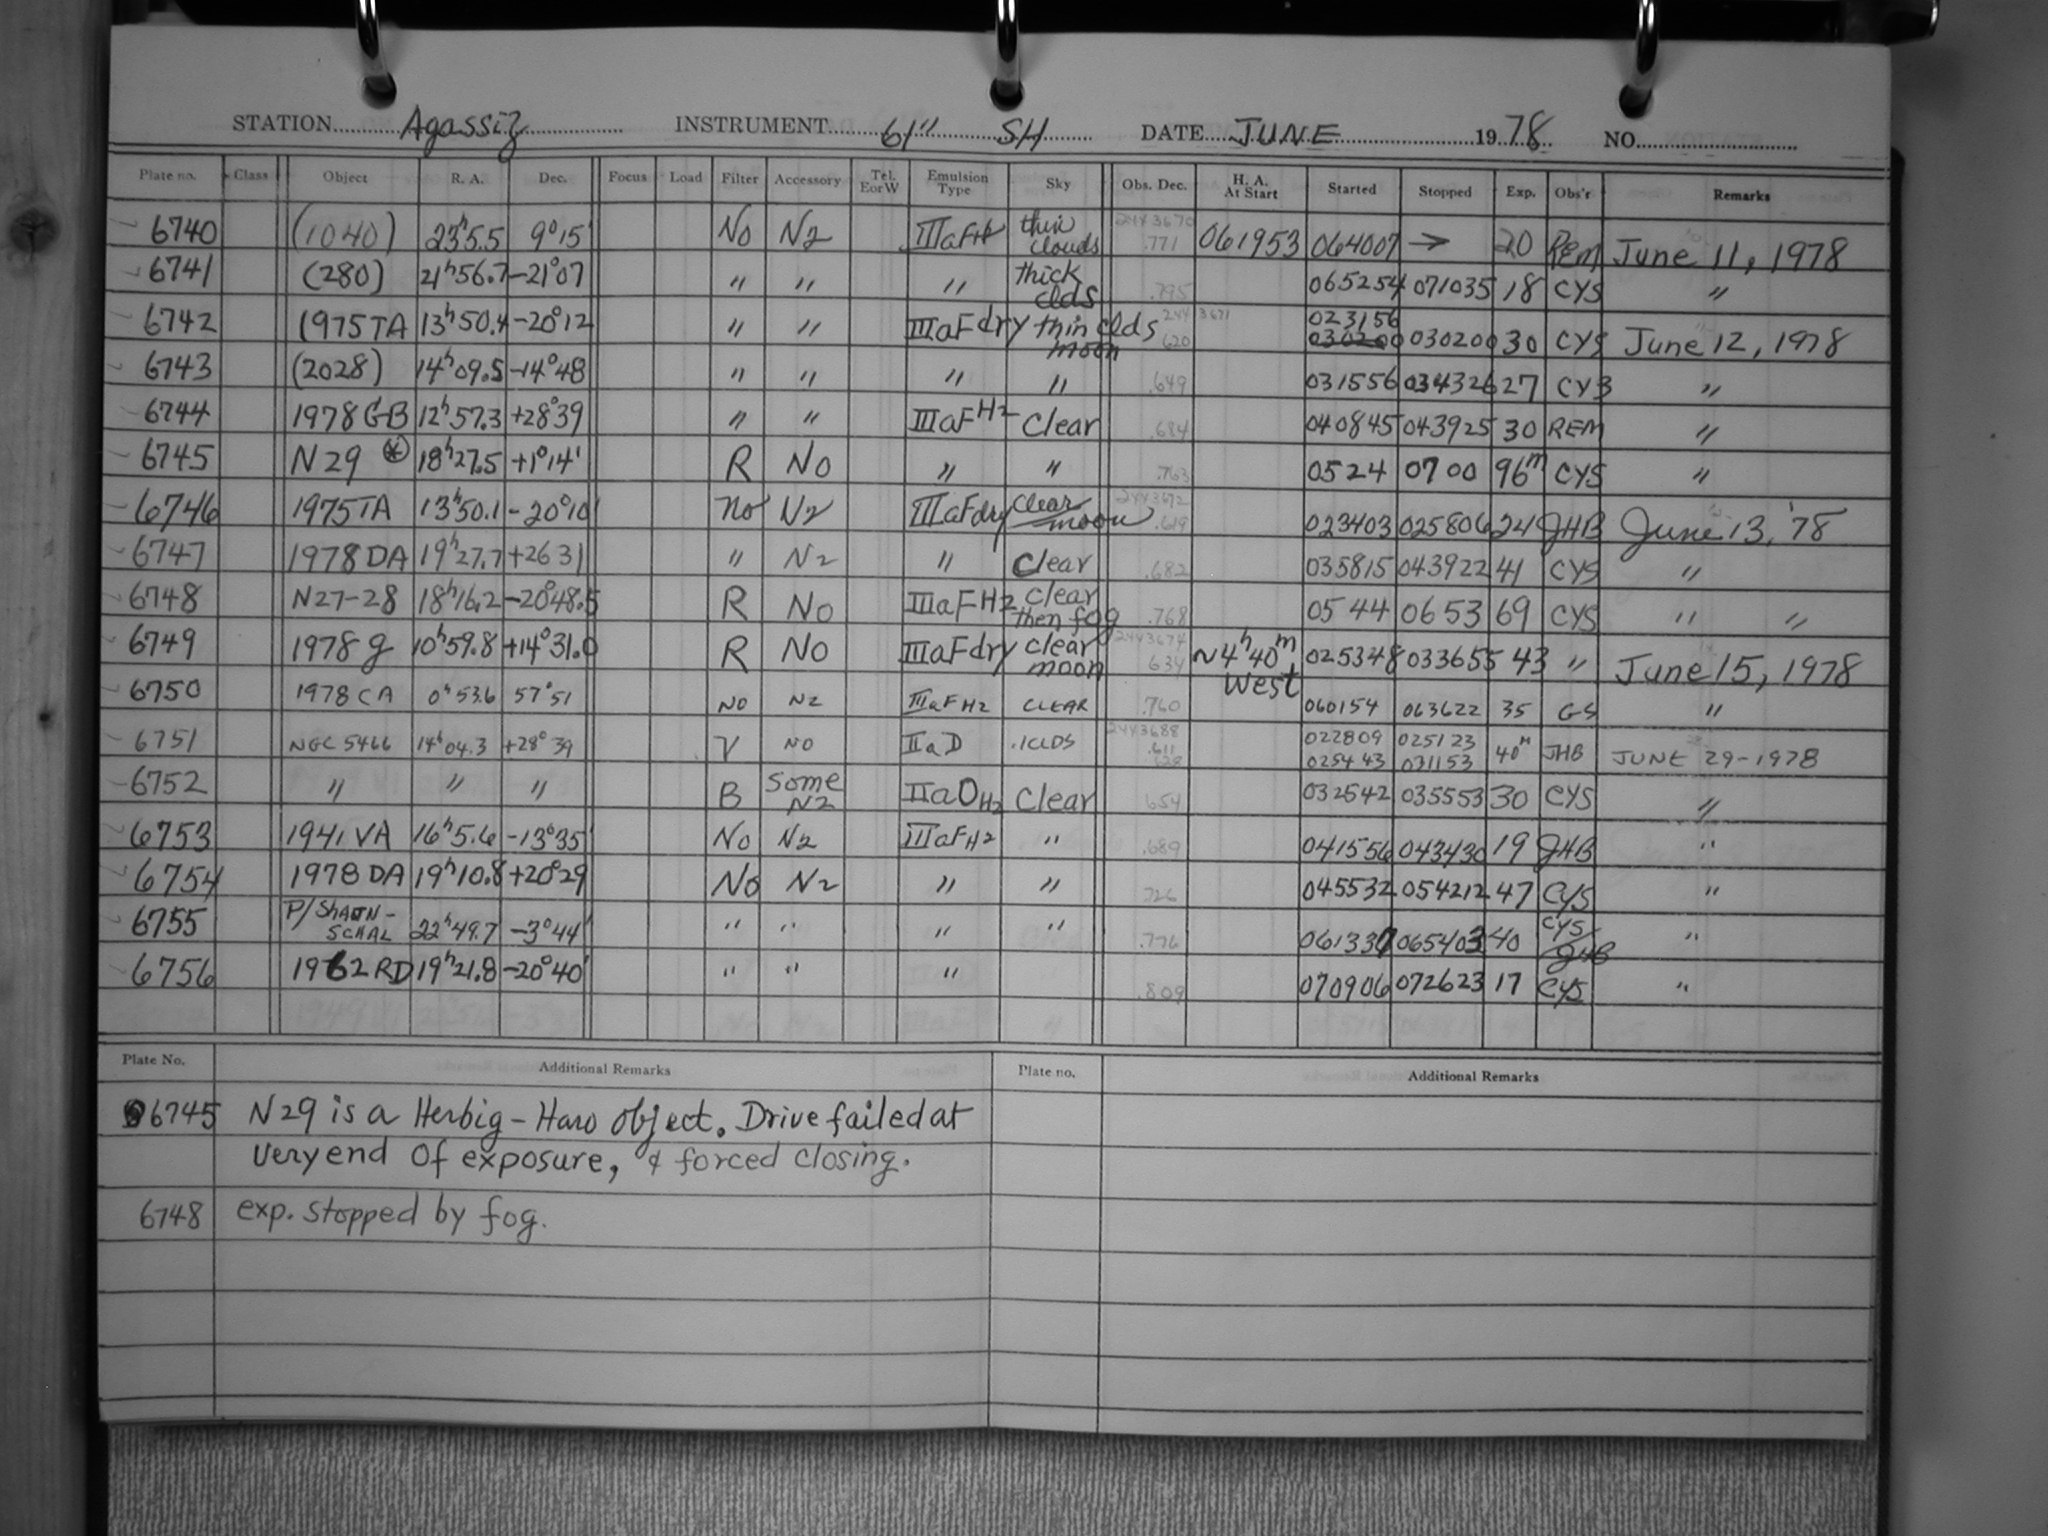 STATION Agassiz INSTRUMENT 61" SH DATE JUNE 1978 NO.
Plate no. Class Object R. A. Dec. Focus Load Filter Accessory Tel. E or W Emulsion Type Sky Obs. Dec. H. A. At Start Started Stopped Exp. Obs'r Remarks
6740 (1040) 23h5.5 9°15' No N2 IIIaFH2 thin clouds 2443670 .771 061953 064007 → 20 REM June 11, 1978
6741 (280) 21h56.7 -21°07 " " " thick clds .795 065254 071035 18 CYS "
6742 1975TA 13h50.4 -20°12 " " IIIaF dry thin clds moon 2443671 .620 023156 030200 030200 30 CYS June 12, 1978
6743 (2028) 14h09.5 -14°48 " " " " .649 031556 034326 27 CYS "
6744 1978 GB 12h57.3 +28°39 " " IIIaF H2 clear .684 040845 043925 30 REM "
6745 N29 * 18h27.5 +1°14' R No " " .763 0524 0700 96m CYS "
6746 1975TA 13h50.1 -20°10' no N2 IIIaFdry clear moon 2443672 .619 023403 025806 24 JHB June 13, '78
6747 1978 DA 19h27.7 +26 31 " N2 " clear .682 035815 043922 41 CYS "
6748 N27-28 18h16.2 -20°48.5 R No IIIaF H2 clear then fog .768 0544 0653 69 CYS " "
6749 1978 g 10h59.8 +14°31.0 R No IIIaFdry clear moon 2443674 .634 ~4h40m west 025348 033655 43 " June 15, 1978
6750 1978 CA 0h53.6 57°51 NO N2 IIIaF H2 CLEAR .760 060154 063622 35 GS "
6751 NGC 5466 14h04.3 +28°39 V NO IIaD .1CLDS 2443688 .611 .628 022809 025443 025123 031153 40m JHB JUNE 29-1978
6752 " " " B some N2 IIaO H2 clear .654 032542 035553 30 CYS "
6753 1941 VA 16h5.6 -13°35' No N2 IIIaFH2 " .689 041556 043430 19 JHB "
6754 1978 DA 19h10.8 +20°29 No N2 " " .726 045532 054212 47 CYS "
6755 P/SHAJN-SCHAL 22h49.7 -3°44' " " " " .776 061337 065403 40 CYS/JHB "
6756 1962 RD 19h21.8 -20°40' " " " .809 070906 072623 17 CYS "
Plate No. Additional Remarks Plate no. Additional Remarks
6745 N29 is a Herbig-Haro object. Drive failed at
very end of exposure, & forced closing.
6748 exp. stopped by fog.